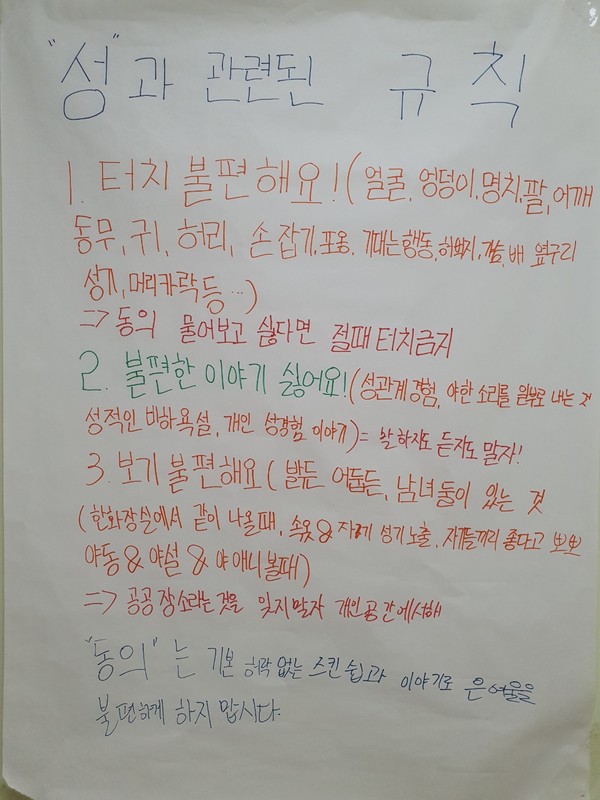 "성"과 관련된 규칙
1. 터치 불편해요! (얼굴, 엉덩이, 명치, 팔, 어깨
동무, 귀, 허리, 손잡기, 포옹, 기대는행동, 허벅지, 가슴, 배 옆구리
성기, 머리카락 등 …)
=> 동의 물어보고 싫다면 절때 터치금지
2. 불편한 이야기 싫어요! (성관계 경험, 야한 소리를 일부로 내는 것
성적인 비하 욕설, 개인 성경험 이야기) = 말하지도 듣지도 말자!
3. 보기 불편해요 ( 밝든 어둡든, 남녀 둘이 있는 것
(한화장실에서 같이 나올때, 속옷 & 자기 성기노출, 자기들끼리 좋다고 뽀뽀
야동 & 야설 & 야애니 볼때)
=> 공공장소라는것을 잊지말자 개인공간에서해
"동의"는 기본 허락없는 스킨쉽과 이야기로 은여울을
불편하게 하지 맙시다.